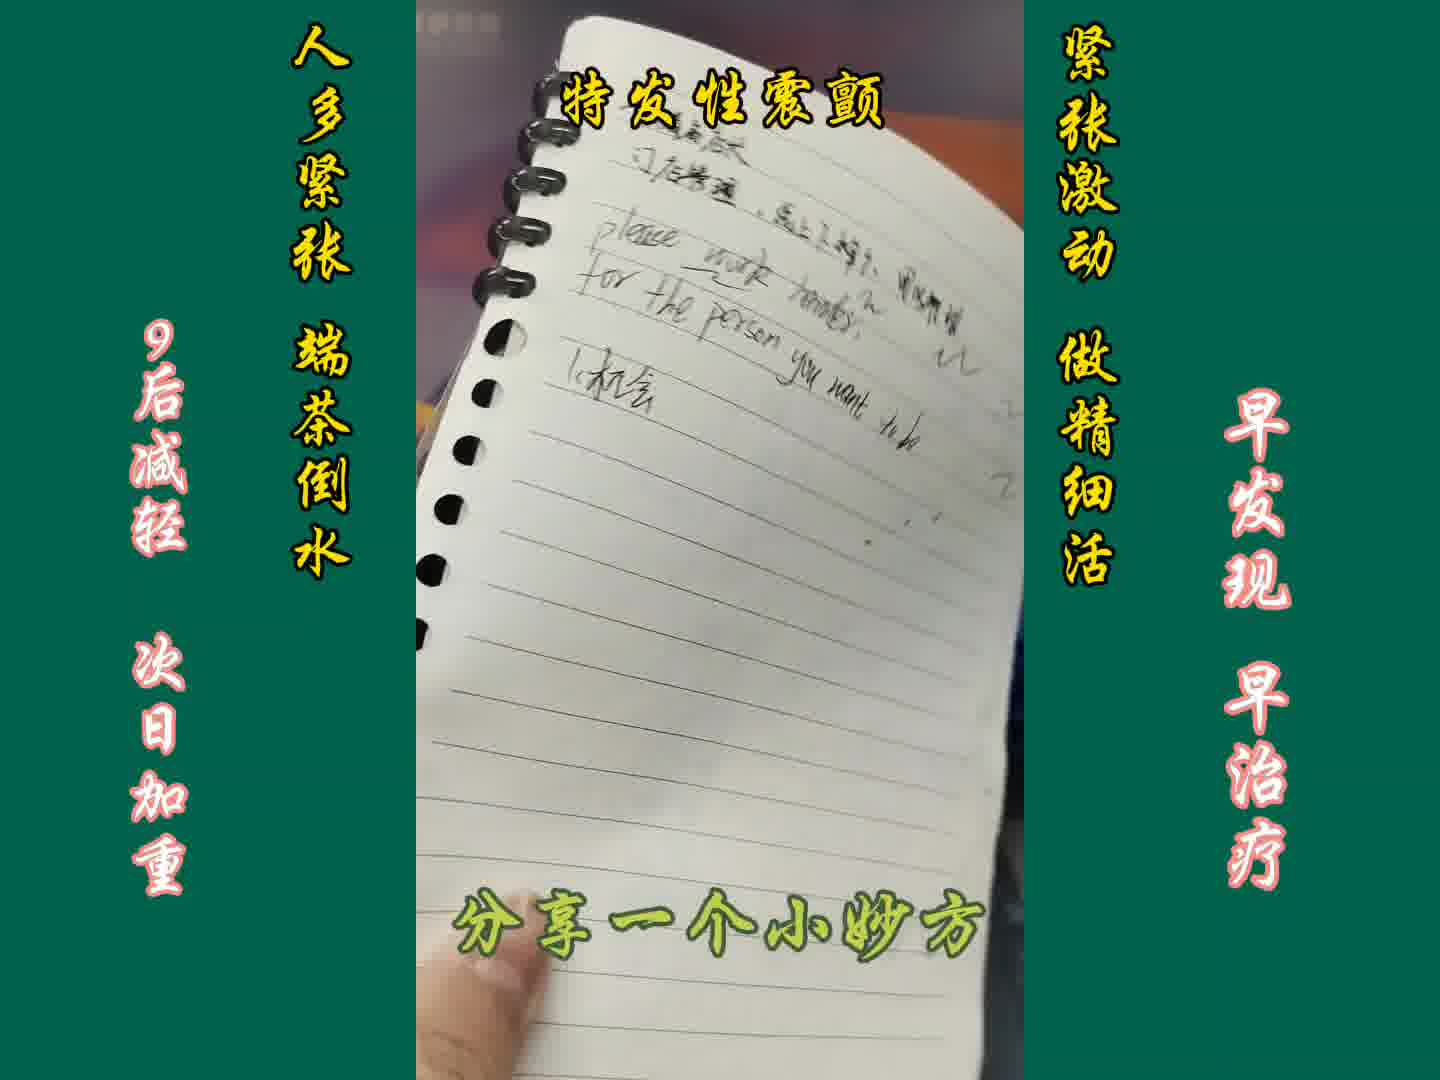 特发性震颤
人多紧张 端茶倒水
9后减轻 次日加重
紧张激动 做精细活
早发现 早治疗
please work harder,
for the person you want to be
1、机会
分享一个小妙方